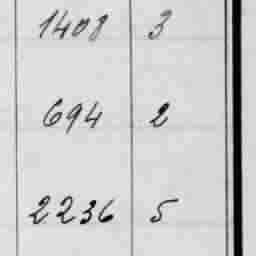 1408 3
694 2
2236 5